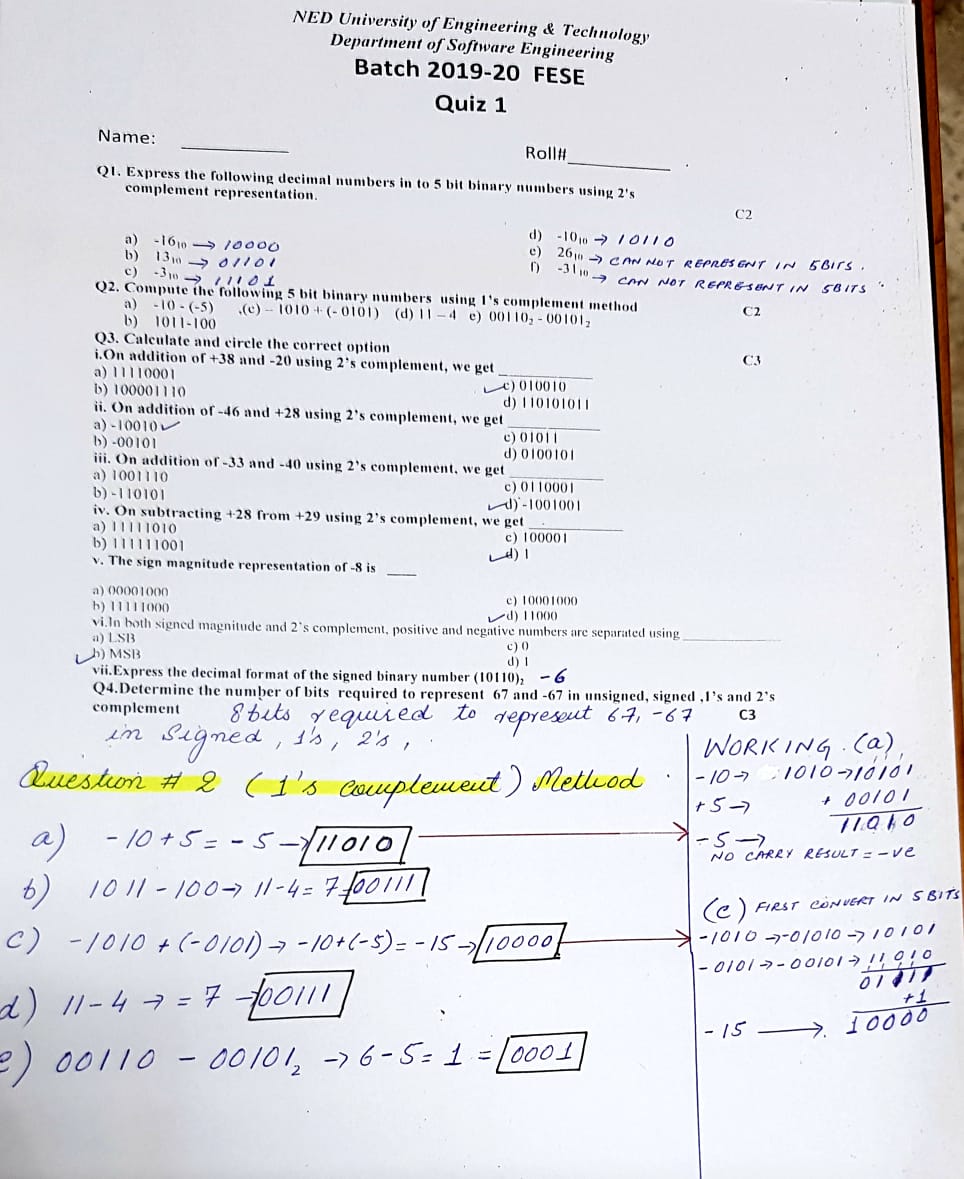 NED University of Engineering & Technology
Department of Software Engineering
Batch 2019-20 FESE
Quiz 1
Name: ____________
Roll#____________
Q1. Express the following decimal numbers in to 5 bit binary numbers using 2's
complement representation.
C2
a) -16₁₀ → 10000
b) 13₁₀ → 01101
c) -3₁₀ → 11101
d) -10₁₀ → 10110
e) 26₁₀ → CAN NOT REPRESENT IN 5BITS.
f) -31₁₀ → CAN NOT REPRESENT IN 5BITS
Q2. Compute the following 5 bit binary numbers using 1's complement method
C2
a) -10 - (-5) .(c) – 1010 + (- 0101) (d) 11 – 4 e) 00110₂ - 00101₂
b) 1011-100
Q3. Calculate and circle the correct option
C3
i.On addition of +38 and -20 using 2's complement, we get ____________
a) 11110001
b) 100001110
✓c) 010010
d) 110101011
ii. On addition of -46 and +28 using 2's complement, we get ____________
a) -10010 ✓
b) -00101
c) 01011
d) 0100101
iii. On addition of -33 and -40 using 2's complement, we get ____________
a) 1001110
b) -110101
c) 0110001
✓d) -1001001
iv. On subtracting +28 from +29 using 2's complement, we get ____________
a) 11111010
b) 111111001
c) 100001
✓d) 1
v. The sign magnitude representation of -8 is ____
a) 00001000
b) 11111000
c) 10001000
✓d) 11000
vi.In both signed magnitude and 2's complement, positive and negative numbers are separated using ____________
a) LSB
✓b) MSB
c) 0
d) 1
vii.Express the decimal format of the signed binary number (10110)₂ -6
Q4.Determine the number of bits required to represent 67 and -67 in unsigned, signed ,1's and 2's
complement
C3
8bits required to represent 67, -67
in Signed, 1's, 2's,.
Question # 2 (1's complement) Method
a) -10+5 = -5 → 11010
b) 1011 - 100 → 11-4 = 7 → 00111
c) -1010 + (-0101) → -10+(-5) = -15 → 10000
d) 11-4 → = 7 → 00111
e) 00110 - 00101₂ → 6-5 = 1 = 0001
WORKING. (a),
-10 → 1010→10101
+5 → + 00101
-5 → 11010
NO CARRY RESULT = -ve
(c) FIRST CONVERT IN 5BITS
-1010 → -01010 → 10101
-0101 → -00101 → 11010
01111
+1
-15 → 10000